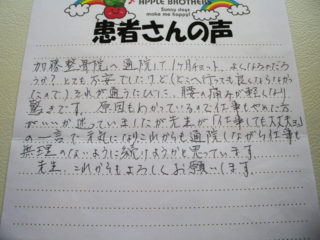 APPLE BROTHERS
Sunny days
make me happy!
患者さんの声
加藤整骨院へ通院して1ヶ月ちょっと、よくなるのだろ
うか?とても不安でしたけど(どこへ行っても良くならなかっ
たので)それが通うたびに…腰の痛みが軽くなり
驚きです。原因もわかっているので仕事もやめた方
がいいか迷っていましたが先生が「仕事しても大丈夫」
の一言で、元気になりこれからも通院しながら仕事も
無理のないように続けようかと思っています。
先生…これからもよろしくお願いします。